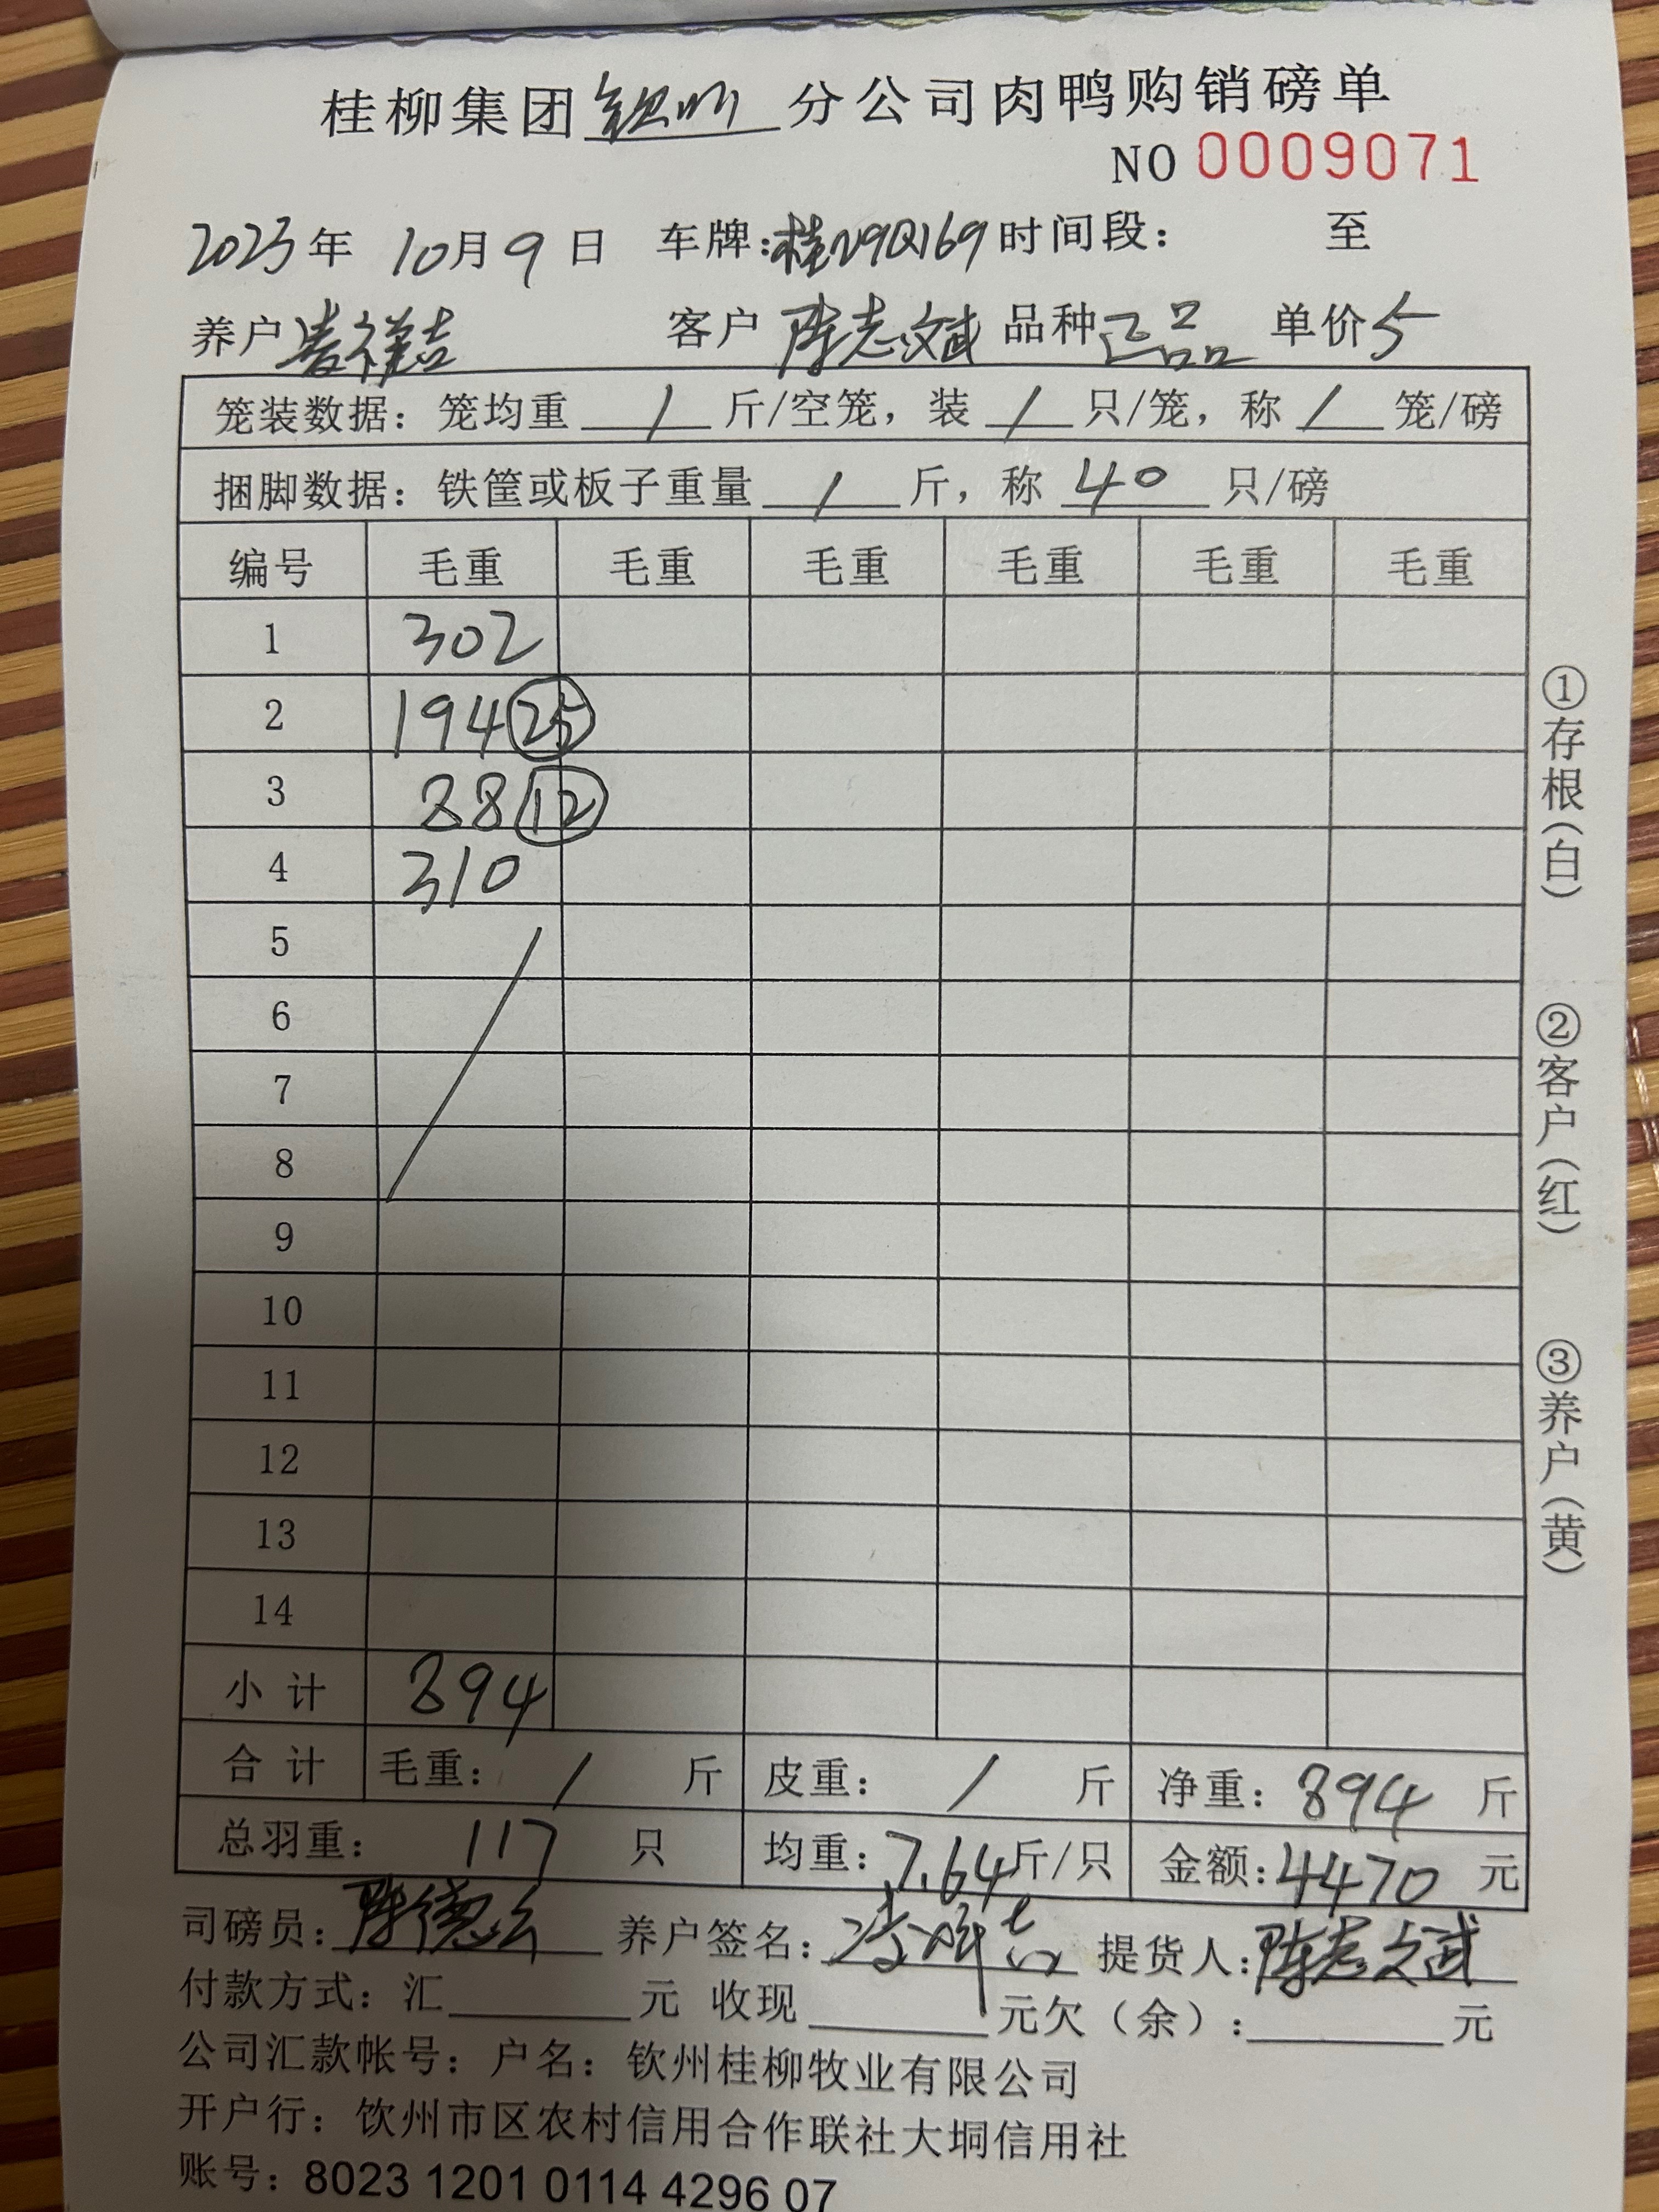 桂柳集团钦州分公司肉鸭购销磅单
NO 0009071
2023年 10月 9 日 车牌: 时间段: 至
养户 客户 陈志斌 品种 正品 单价 5
笼装数据: 笼均重 / 斤/空笼, 装 / 只/笼, 称 / 笼/磅
捆脚数据: 铁筐或板子重量 / 斤, 称 40 只/磅
编号 毛重 毛重 毛重 毛重 毛重 毛重
1 302
2 194 25
3 88 12
4 310
5
6
7
8
9
10
11
12
13
14
小 计 894
合 计 毛重: / 斤 皮重: / 斤 净重: 894 斤
总羽重: 117 只 均重: 7.64 斤/只 金额: 4470 元
司磅员: 养户签名: 提货人: 陈志斌
付款方式: 汇 元 收现 元欠 (余): 元
公司汇款帐号: 户名: 钦州桂柳牧业有限公司
开户行: 钦州市区农村信用合作联社大垌信用社
账号: 8023 1201 0114 4296 07
①存根(白)
②客户(红)
③养户(黄)